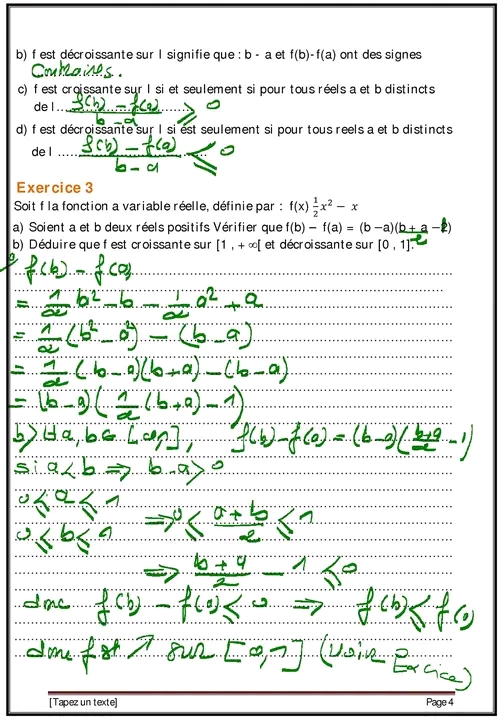 b) f est décroissante sur I signifie que : b - a et f(b)-f(a) ont des signes
Contraires.
c) f est croissante sur I si et seulement si pour tous réels a et b distincts
de I... f(b) - f(a) / b - a ≥ 0
d) f est décroissante sur I si est seulement si pour tous reels a et b distincts
de I ...... f(b) - f(a) / b - a ≤ 0
Exercice 3
Soit f la fonction a variable réelle, définie par : f(x) 1/2 x² − x
a) Soient a et b deux réels positifs Vérifier que f(b) − f(a) = (b −a)(b + a / 2 −1)
b) Déduire que f est croissante sur [1 , + ∞[ et décroissante sur [0 , 1].
f(b) - f(a)
= 1/2 b² - b - 1/2 a² + a
= 1/2 (b² - a²) - (b - a)
= 1/2 (b - a)(b + a) - (b - a)
= (b - a)(1/2 (b + a) - 1)
b) ∀a, b ∈ [0,1], f(b) - f(a) = (b-a)(b+a/2 - 1)
si a < b ⇒ b - a > 0
0 ≤ a ≤ 1
0 ≤ b ≤ 1 ⇒ 0 ≤ a + b / 2 ≤ 1
⇒ b + a / 2 - 1 ≤ 0
donc f(b) - f(a) ≤ 0 ⇒ f(b) ≤ f(a)
donc f est ↗ sur [0,1] (voir Exercice)
[Tapez un texte] Page 4